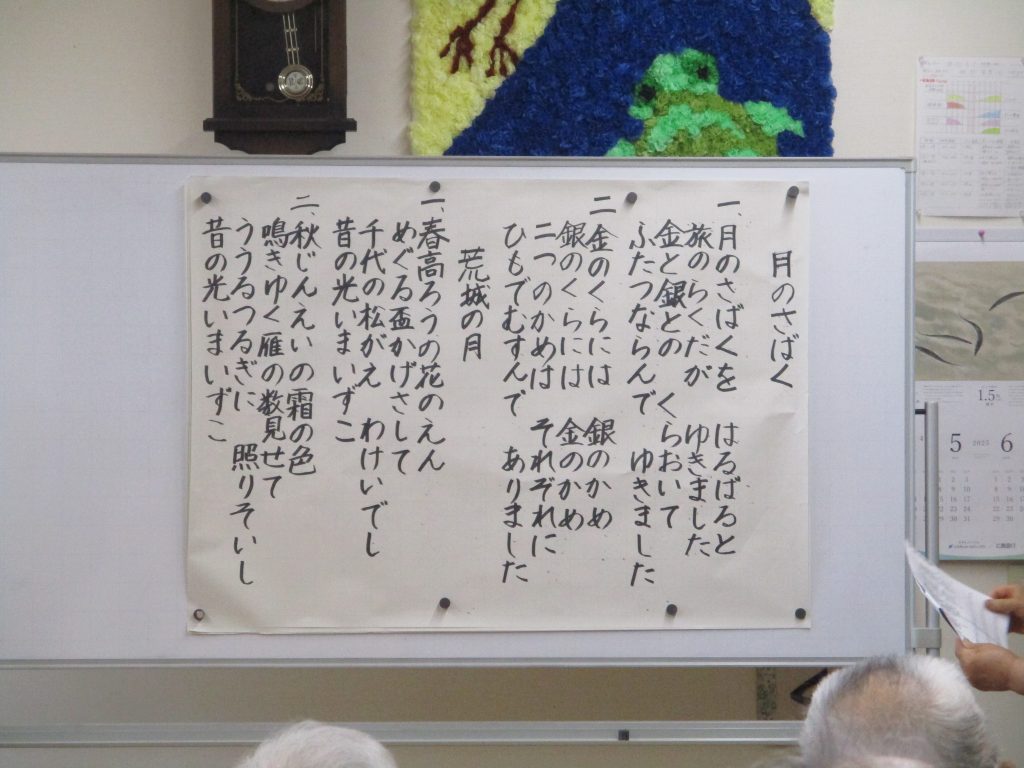 月のさばく
一、月のさばくを はるばると
旅のらくだが ゆきました
金と銀との くらおいて
ふたつならんで ゆきました
二 金のくらには 銀のかめ
銀のくらには 金のかめ
二つのかめは それぞれに
ひもでむすんで ありました
荒城の月
一、春高ろうの花のえん
めぐる盃かげさして
千代の松がえ わけいでし
昔の光いまいずこ
二、秋じんえいの霜の色
鳴きゆく雁の数見せて
ううるつるぎに 照りそいし
昔の光いまいずこ
1.5
5 2025 6